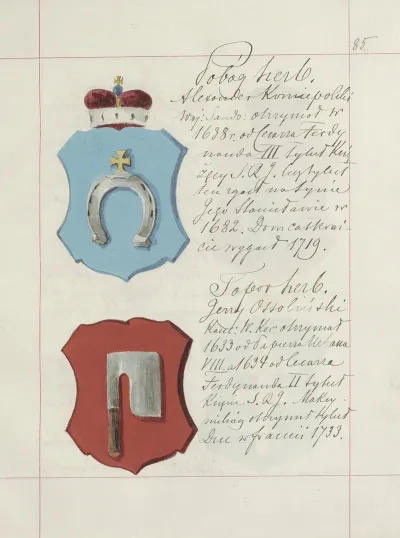 85.
Pobóg herb.
Alexander Koniecpolski
Woj: Sando: otrzymał w
1638 r. od Cesarza Ferdy
nanda III tytuł Ksią
żęcy S.R.J. lecz tytuł
ten zgasł na synie
Jego Stanisławie w
1682. Dom całkowi-
cie wygasł 1719.
Topor herb.
Jerzy Ossoliński
Kanc: W. Kor: otrzymał
1633 od Papieża Urbana
VIII. a 1634 od Cesarza
Ferdynanda II tytuł
Księcia S.R.J. Maksy-
milian otrzymał tytuł
Duc w francii 1733.